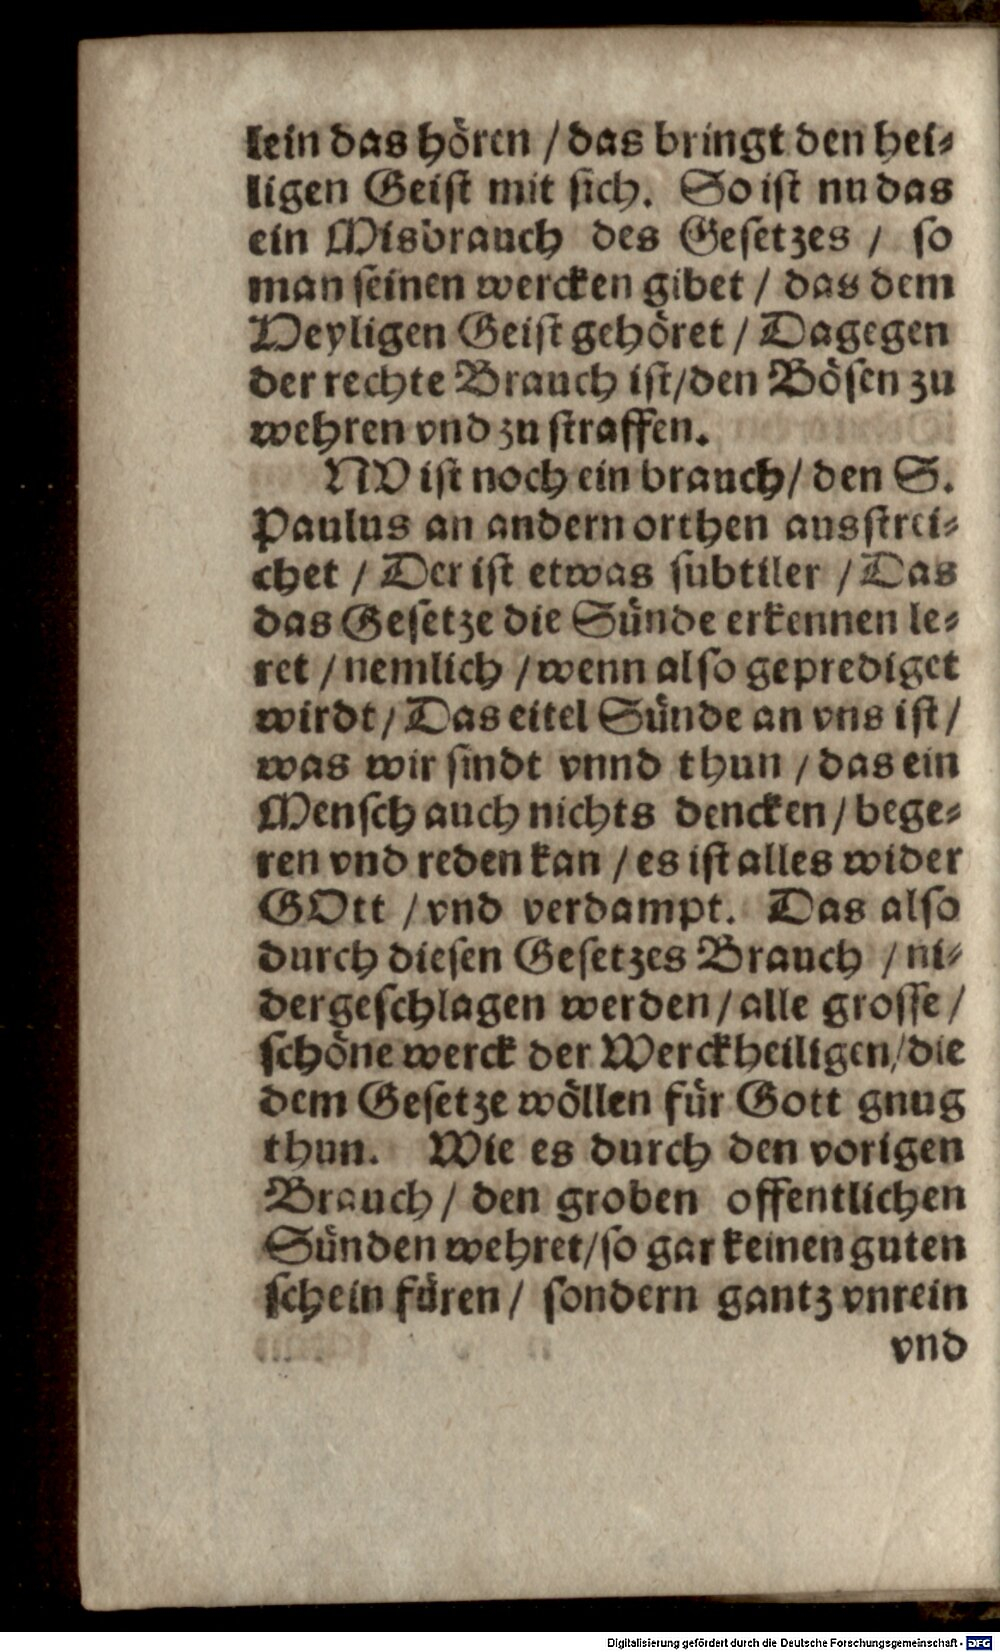 lein das hören / das bringt den hei-
ligen Geist mit sich. So ist nu das
ein Misbrauch des Gesetzes / so
man seinen wercken gibet / das dem
Heyligen Geist gehöret / Dagegen
der rechte Brauch ist/den Bösen zu
wehren vnd zu straffen.
NV ist noch ein brauch/ den S.
Paulus an andern orthen ausstrei-
chet / Der ist etwas subtiler / Das
das Gesetze die Sünde erkennen le-
ret / nemlich / wenn also geprediget
wirdt / Das eitel Sünde an vns ist /
was wir sindt vnnd thun / das ein
Mensch auch nichts dencken / bege-
ren vnd reden kan / es ist alles wider
GOtt / vnd verdampt. Das also
durch diesen Gesetzes Brauch / ni-
dergeschlagen werden / alle grosse /
schöne werck der Werckheiligen/die
dem Gesetze wöllen für Gott gnug
thun. Wie es durch den vorigen
Brauch / den groben offentlichen
Sünden wehret/so gar keinen guten
schein füren / sondern gantz vnrein
vnd
Digitalisierung gefördert durch die Deutsche Forschungsgemeinschaft - DFG